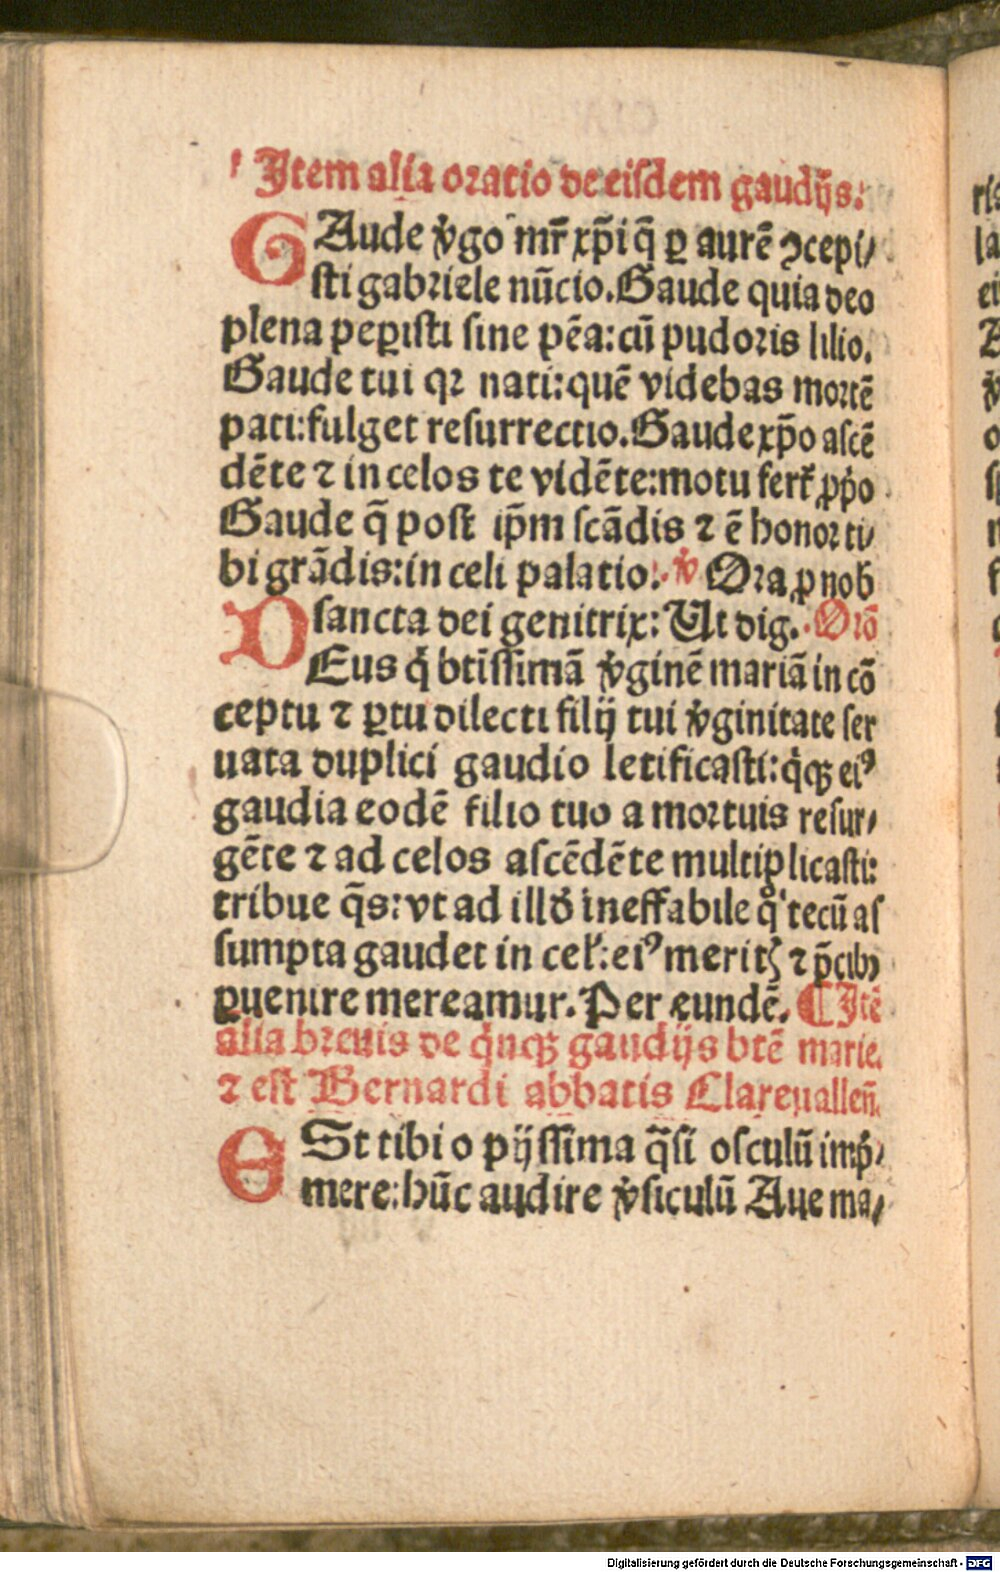 Jtem alia oratio de eisdem gaudijs.
GAude v̓go mr̄ xp̄i q̄ ꝑ aurē ꝯcepi⸗
sti gabriele nūcio. Gaude quia deo
plena peꝑisti sine pēa: cū pudoris lilio.
Gaude tui qꝛ nati: quē videbas mortē
pati: fulget resurrectio. Gaude xp̄o ascē
dēte ⁊ in celos te vidēte: motu ferť ꝓp̓o
Gaude q̄ post ip̄m scādis ⁊ ē honor ti⸗
bi grādis: in celi palatio. v̓ Ora ꝓ nob̄
sancta dei genitrix: Ut dig. Orō
DEus q̓ btīssimā v̓ginē mariā in cō
ceptu ⁊ ꝑtu dilecti filij tui v̓ginitate ser
uata duplici gaudio letificasti: q̓qꝫ eiꝰ
gaudia eodē filio tuo a mortuis resur⸗
gēte ⁊ ad celos ascēdēte multiplicasti:
tribue q̄s: vt ad illđ ineffabile q̓ tecū as
sumpta gaudet in cel̓: eiꝰ meritꝭ ⁊ p̄cibꝰ
ꝑuenire mereamur. Per eundē. ¶ Jtē
alia breuis de q̓nqꝫ gaudijs btē marie.
⁊ est Bernardi abbatis Clareuallen̄.
ESt tibi o pijssima q̄si osculū imp̓⸗
mere: hūc audire v̓siculū Aue ma⸗
Digitalisierung gefördert durch die Deutsche Forschungsgemeinschaft - DFG